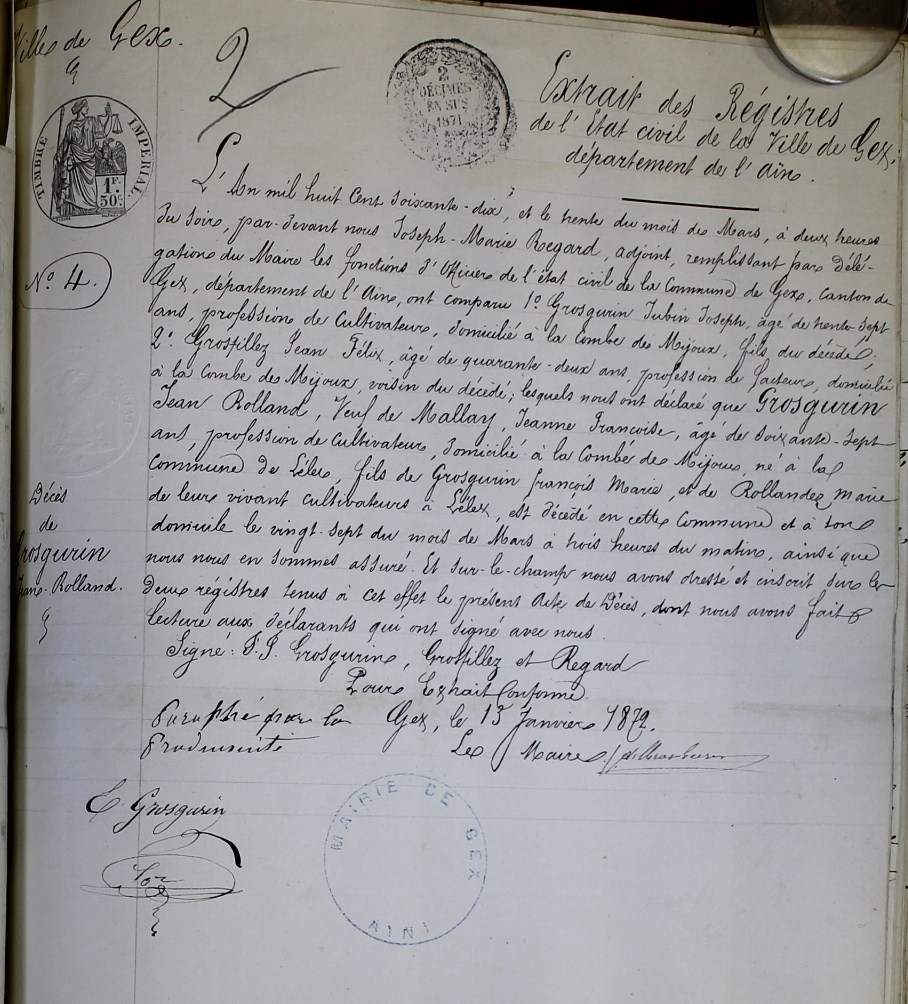 Ville de Gex.
2
TIMBRE IMPERIAL.
1F.
50C.
2
DÉCIMES
EN SUS
1871
Extrait des Régistres
de l'Etat civil de la Ville de Gex,
département de l'Ain.
No. 4.
L'An mil huit Cent soixante-dix, et le trente du mois de Mars, à deux heures
du soir, par-devant nous Joseph-Marie Regard, adjoint, remplissant par délé-
gation du Maire les fonctions d'Officier de l'état civil de la Commune de Gex, Canton de
Gex, département de l'Ain, ont comparu 1o. Grosgurin Jubin Joseph, âgé de trente-sept
ans, profession de Cultivateur, domicilié à la Combe de Mijoux, fils du décédé;
2o. Grosfillez Jean Félix, âgé de quarante-deux ans, profession de facteur, domicilié
à la Combe de Mijoux, voisin du décédé; lesquels nous ont déclaré que Grosgurin
Jean Rolland, Veuf de Mallay, Jeanne Francoise, âgé de soixante-sept
ans, profession de Cultivateur, domicilié à la Combe de Mijoux, né à la
Commune de Lélex, fils de Grosgurin françois Marie, et de Rollandez Marie
de leur vivant Cultivateurs à Lélex, est décédé en cette Commune et à son
domicile le vingt-sept du mois de Mars à trois heures du matin, ainsi que
nous nous en sommes assuré. Et sur-le-champ nous avons dressé et inscrit sur les
deux régistres tenus à cet effet le présent Acte de Décès, dont nous avons fait
lecture aux déclarants qui ont signé avec nous.
Décès
de
Grosgurin
Jean-Rolland.
Signé: J. J. Grosgurin, Grosfillez et Regard
Pour Extrait Conforme
Gex, le 13 Janvier 1872.
Le Maire
Paraphé par la
E Grosgurin
MAIRIE DE GEX
AIN